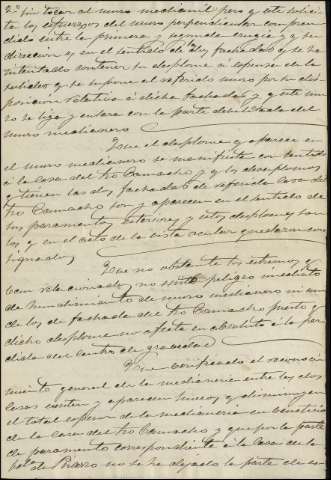 2º Sin tocar al muro medianil pero q este solici-
ta los esfuerzos del muro perpendicular con pren-
dido entre la primera y segunda crugia y q su
direccion y en el sentido de las fachadas q se ha
intentado contener su desplome á espensas de la
q se supone al referido muro por su dis-
posicion relativa á dicha fachada y q este mu-
ro se liga y enlaza con la parte del
muro medianero
Que el desplome q aparece en
el muro medianero se manifiesta con tendencia
á la casa del Sro Camacho y q los desplomes
q tienen las dos fachadas de referida casa del
Sro Camacho son y aparecen en el sentido de
los paramentos exteriores y estos desplomes son
los q en el acto de la vista ocular quedaron con-
signados
Que no obstante los extremos q
con relacionados, no peligro inmediato
de hundimiento de muro medianero ni aun
de los de fachada del Sro Camacho puesto q
dicho desplome no afecta en absoluto á la per-
dida del centro de gravedad
Que verificado el reconoci-
miento general de la medianeria entre las dos
casas existen y aparecen huecos q disminuyen
el total espesor de la medianeria en beneficio
de la casa del Sro Camacho y que por la parte
de paramento correspondiente á la casa de la
de Pizarro no se ha dejado la parte de es-